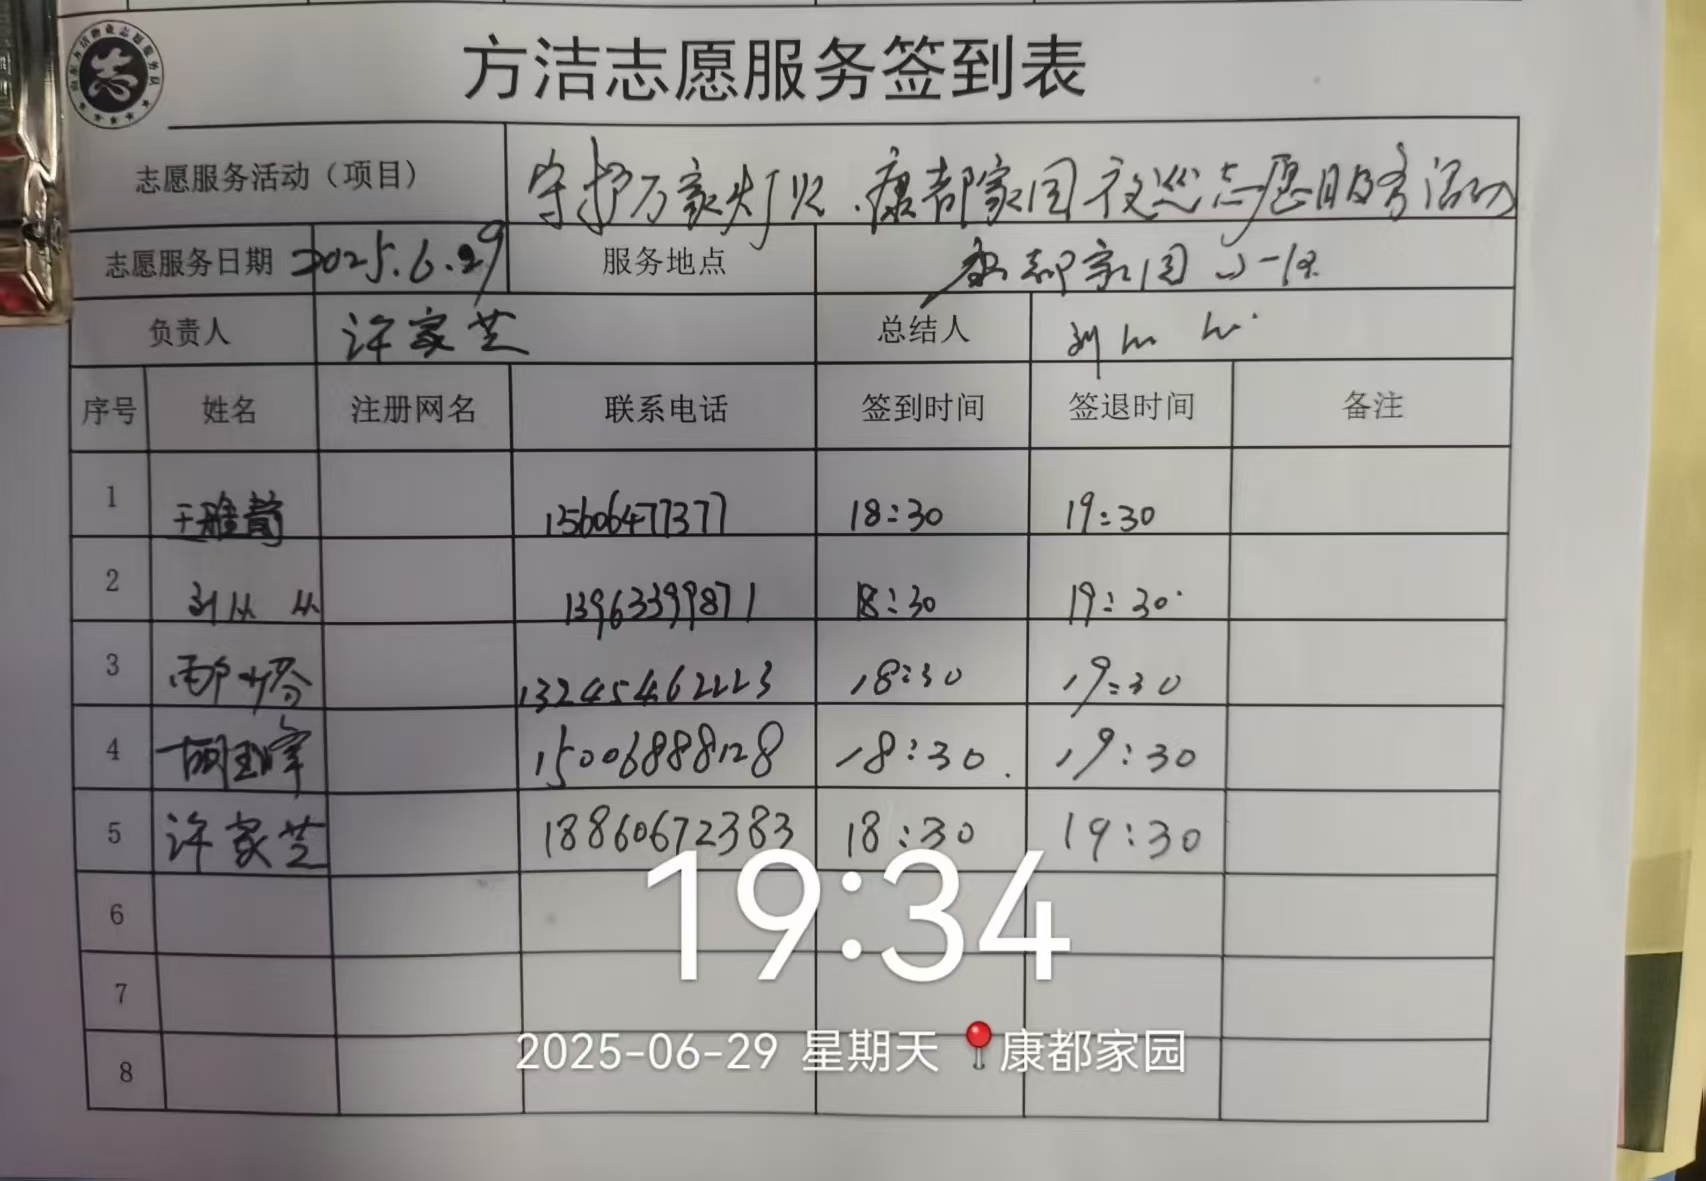 方洁志愿服务签到表
志愿服务活动（项目） 守护万家灯火.康都家园夜巡志愿服务活动
志愿服务日期 2025.6.29 服务地点 康都家园
负责人 许家芝 总结人 刘
序号 姓名 注册网名 联系电话 签到时间 签退时间 备注
1 王雅静 15606477377 18:30 19:30
2 刘从从 13963399871 18:30 19:30
3 13245462223 18:30 19:30
4 胡玉峰 15006888128 18:30 19:30
5 许家芝 18860672383 18:30 19:30
6
7
8
19:34
2025-06-29 星期天 康都家园